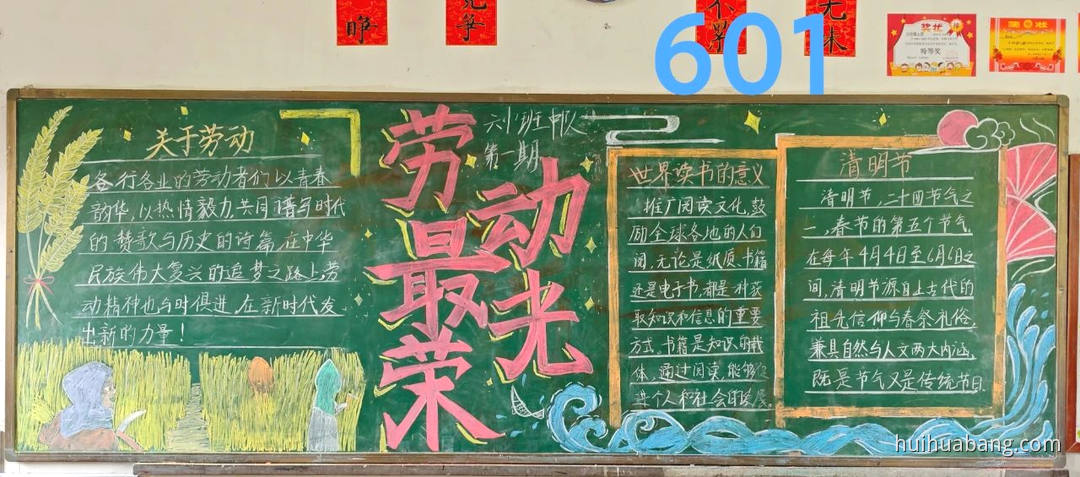 601
奖状
特等奖
关于劳动
各行各业的劳动者们以青春
韵华,以热情毅力,共同谱写时代
的赞歌与历史的诗篇,在中华
民族伟大复兴的追梦之路上,劳
动精神也与时俱进,在新时代发
出新的力量!
劳动
最光
荣
六小班中队
第一期
世界读书的意义
推广阅读文化,鼓
励全球各地的人们
阅,无论是纸质书籍
还是电子书,都是对获
取知识和信息的重要
方式,书籍是知识的载
体,通过阅读,能够促
进个人和社会的发展
清明节
清明节,二十四节气之
一,春节的第五个节气,
在每年4月4日至6月6日之
间,清明节源自上古代的
祖先信仰与春祭礼俗,
兼具自然与人文两大内涵,
既是节气又是传统节日
huihuabang.com